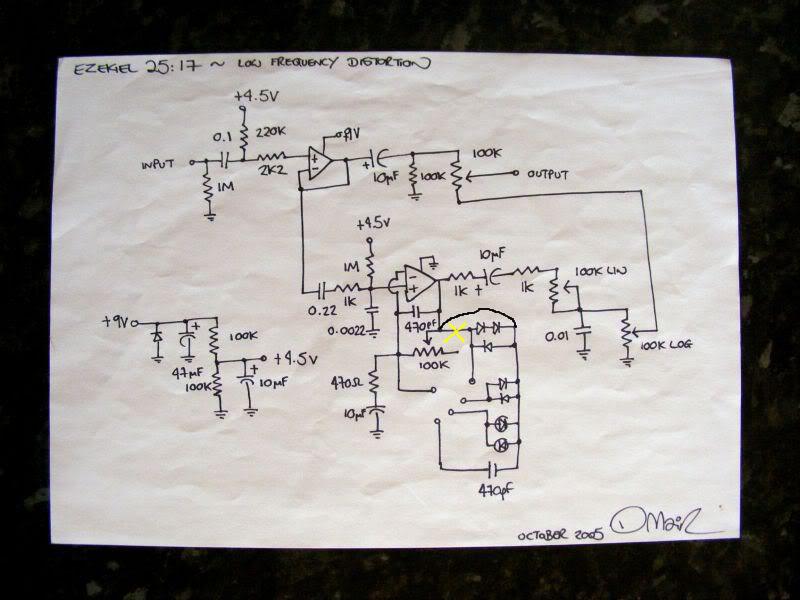 EZEKIEL 25:17 ~ LOW FREQUENCY DISTORTION
+4.5V
0.1
220K
+9V
INPUT
2K2
+
-
+
10µF
100K
100K
OUTPUT
1M
+4.5V
1M
10µF
-
+
1K
+
1K
100K LIN
0.22
1K
0.0022
470pF
0.01
100K LOG
+9V
+
100K
+4.5V
47µF
100K
+
10µF
100K
470Ω
10µF
470pF
OCTOBER 2005